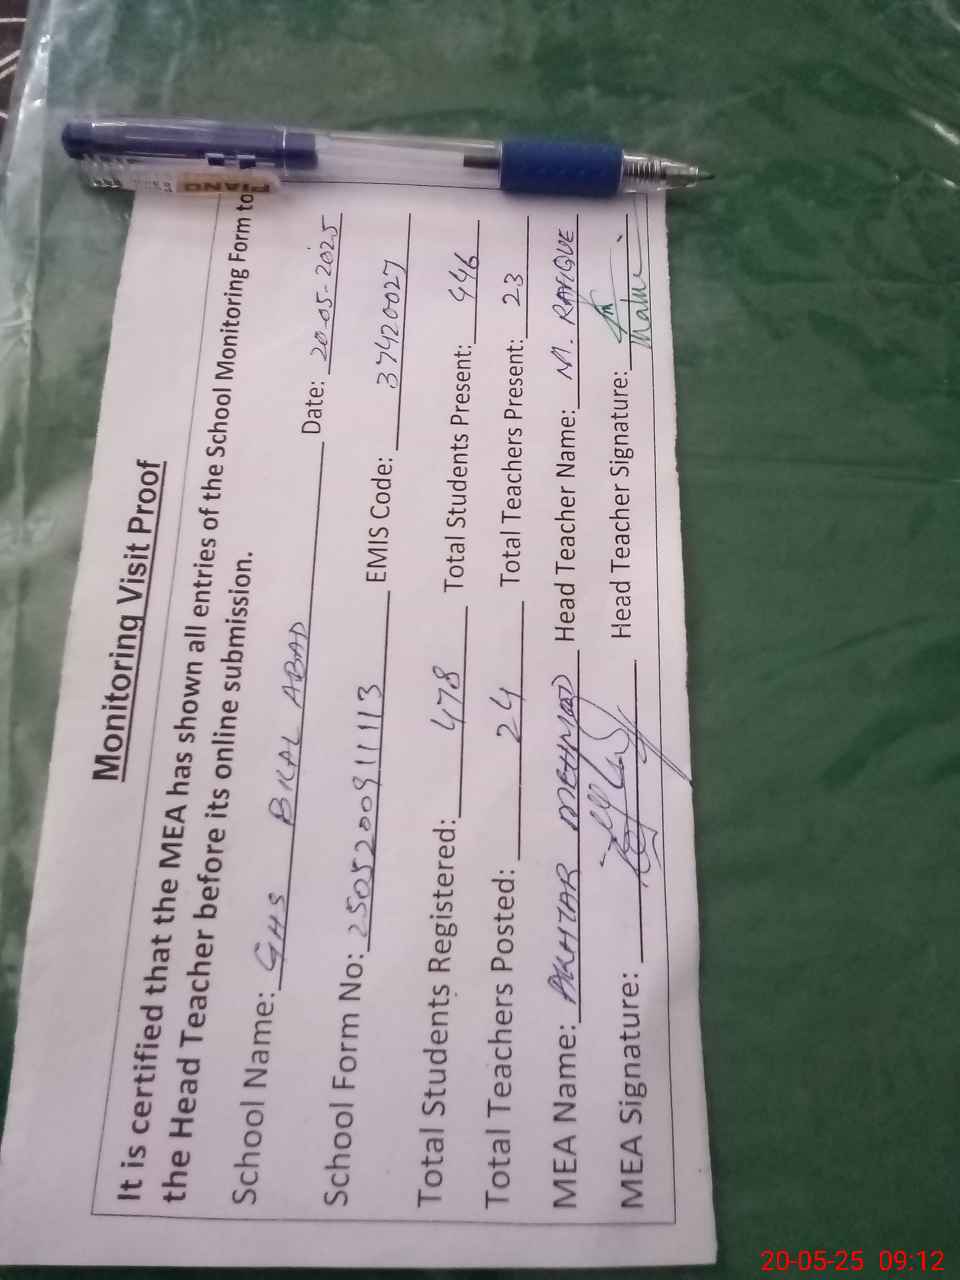 Monitoring Visit Proof
It is certified that the MEA has shown all entries of the School Monitoring Form to
the Head Teacher before its online submission.
School Name: GHS BILAL ABAD Date: 20-05-2025
School Form No: 2505200911113 EMIS Code: 37420027
Total Students Registered: 478 Total Students Present: 446
Total Teachers Posted: 24 Total Teachers Present: 23
MEA Name: AKHTAR MEHMOOD Head Teacher Name: M. RAFIQUE
MEA Signature: Head Teacher Signature:
PIANO
20-05-25 09:12